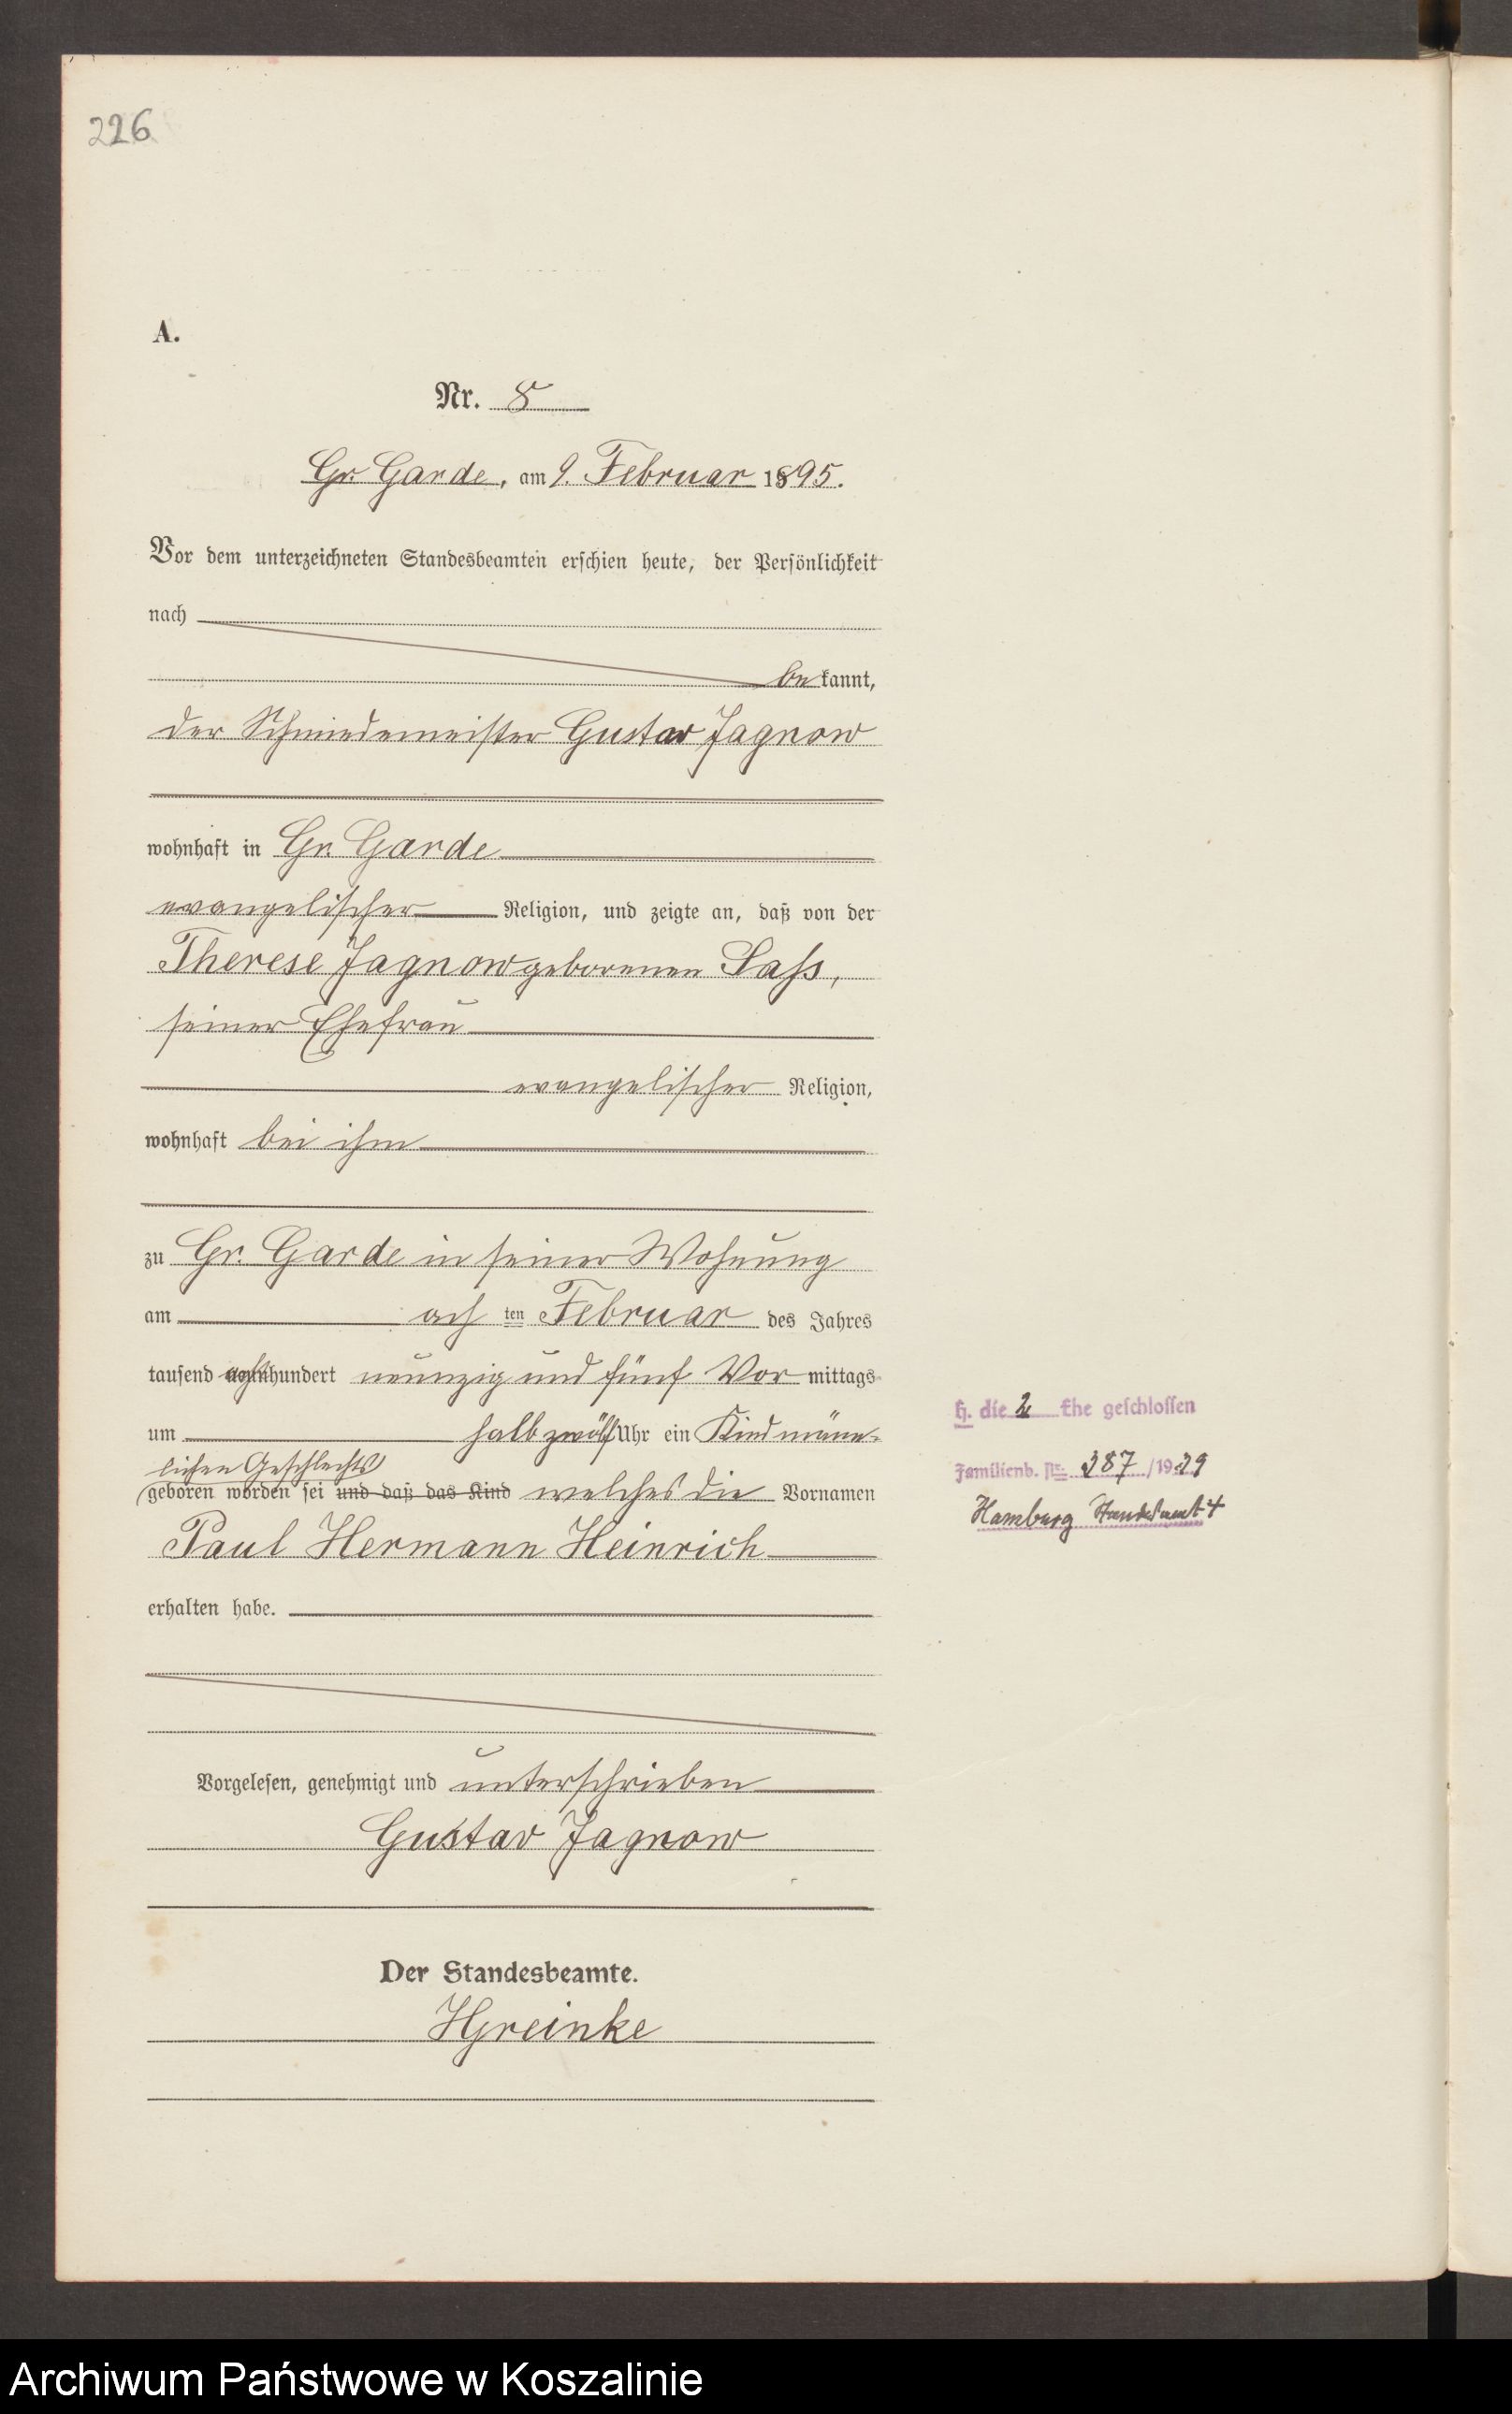 226
A.
Nr. 8
Gr. Garde, am 9. Februar 1895.
Vor dem unterzeichneten Standesbeamten erschien heute, der Persönlichkeit
nach
be kannt,
der Schmiedemeister Gustav Jagnow
wohnhaft in Gr. Garde
evangelischer Religion, und zeigte an, daß von der
Therese Jagnow geborenen Sass,
seiner Ehefrau
evangelischer Religion,
wohnhaft bei ihm
zu Gr. Garde in seiner Wohnung
am ach ten Februar des Jahres
tausend acht hundert neunzig und fünf Vor mittags
um halb zwölf Uhr ein Kind männ-
lichen Geschlechts
geboren worden sei und daß das Kind welches die Vornamen
Paul Hermann Heinrich
erhalten habe.
Vorgelesen, genehmigt und unterschrieben
Gustav Jagnow
Der Standesbeamte.
HGreinke
H. die 2 Ehe geschlossen
Familienb. Nr. 387 /1929
Hamburg Standesamt 4
Archiwum Państwowe w Koszalinie